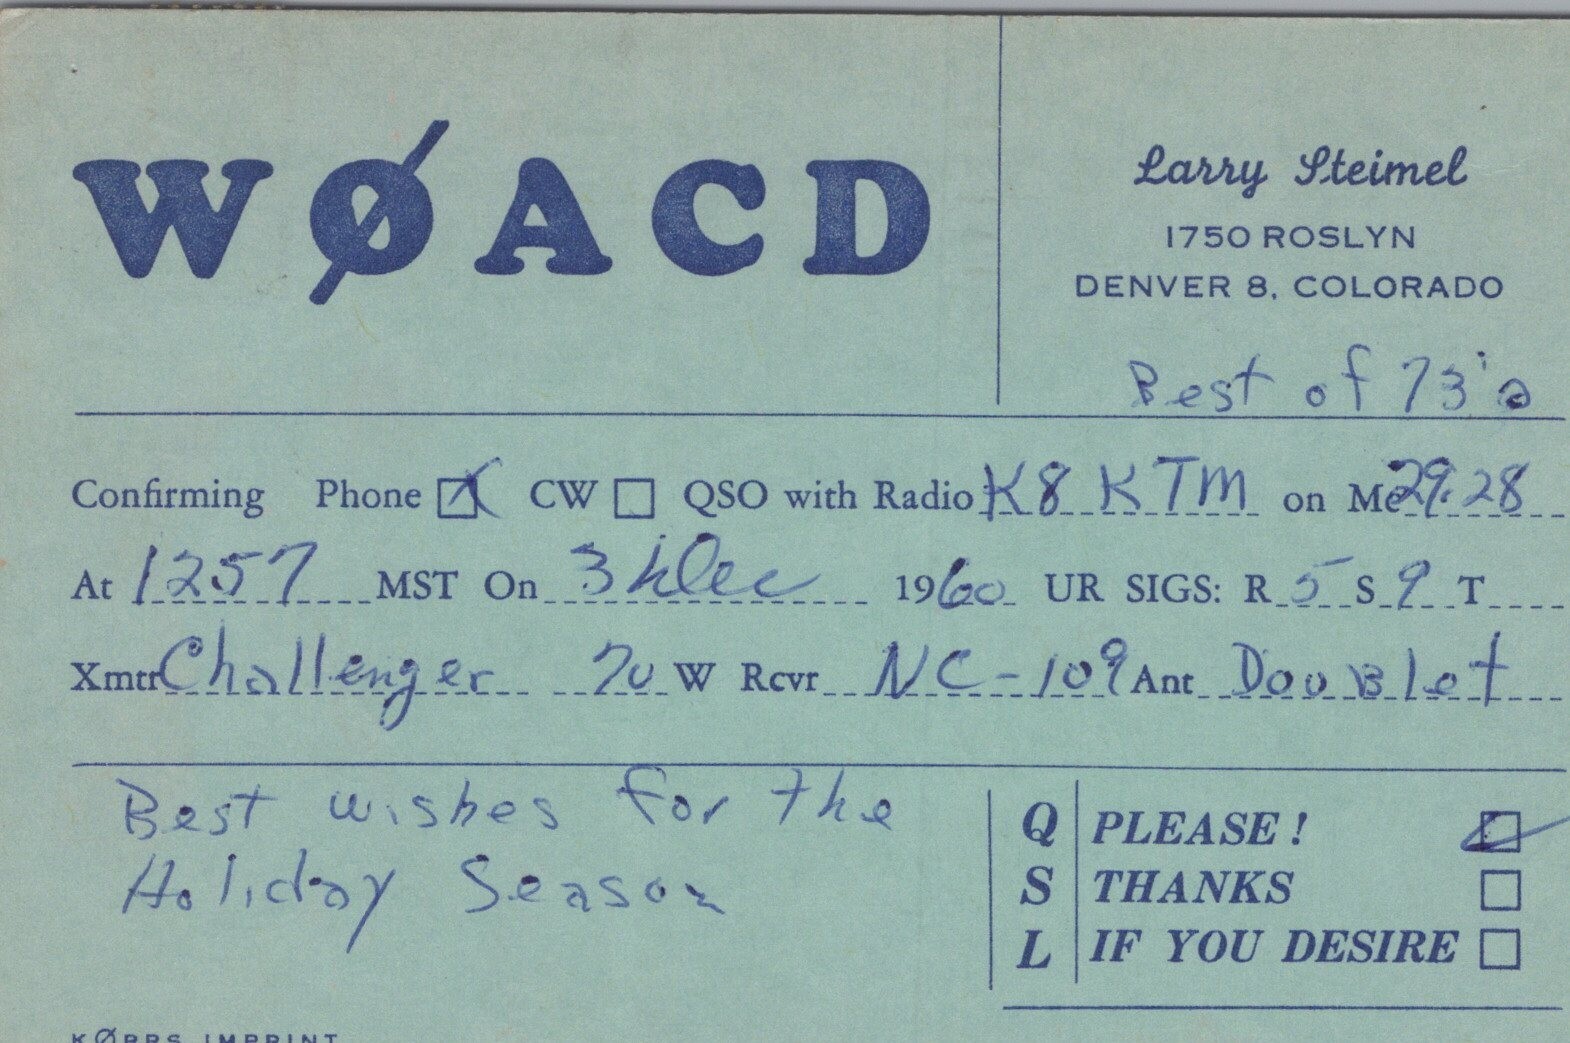 WØACD
Larry Steimel
1750 ROSLYN
DENVER 8, COLORADO
Best of 73's
Confirming Phone ☒ CW ☐ QSO with Radio K8KTM on Mc 29.28
At 1257 MST On 3 Dec 1960 UR SIGS: R 5 S 9 T
Xmtr Challenger 70 W Rcvr NC-109 Ant Doublet
Best wishes for the
Holiday Season
Q PLEASE! ☑
S THANKS ☐
L IF YOU DESIRE ☐
IMPRINT